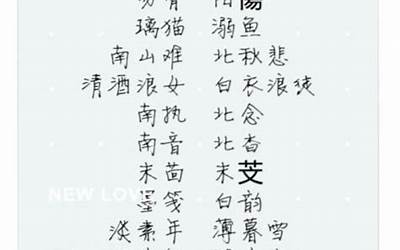 璃猫 溺鱼
南山难 北秋悲
清酒浪女 白衣浪徒
南执 北念
南音 北杳
末茴 末芠
NEW LOVE
墨笺 白韵
淡素年 薄暮雪